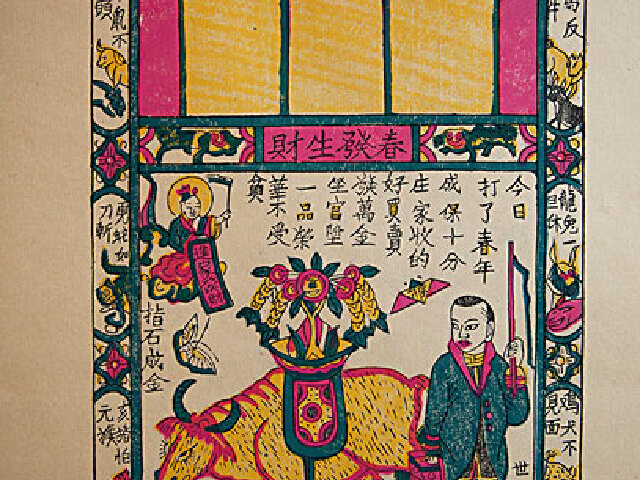 春發生財
今日
打了春年
成保十分
庄家收的
好買賣
發萬金
坐官陞
一品榮
華不受
貧
指石成金
馬反
鼠不
頭
龍兔一
旦休
虎蛇如
刀斬
鸡犬不
見面
亥猪怕
元猴
世